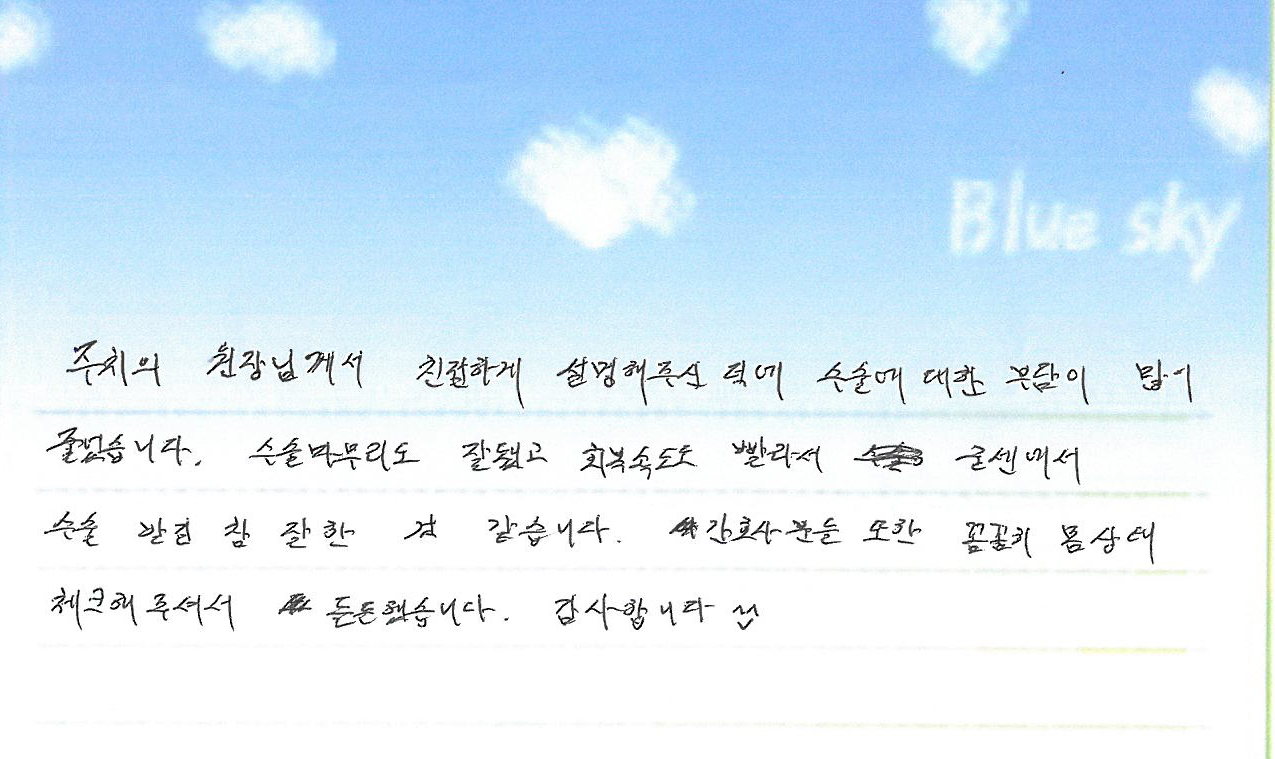 Blue sky
주치의 원장님께서 친절하게 설명해주신 덕에 수술에 대한 부담이 많이
줄었습니다. 수술마무리도 잘됐고 회복속도도 빨라서 굳센에서
수술 받길 참 잘한 것 같습니다. 간호사분들 또한 꼼꼼히 몸상태
체크해주셔서 든든했습니다. 감사합니다